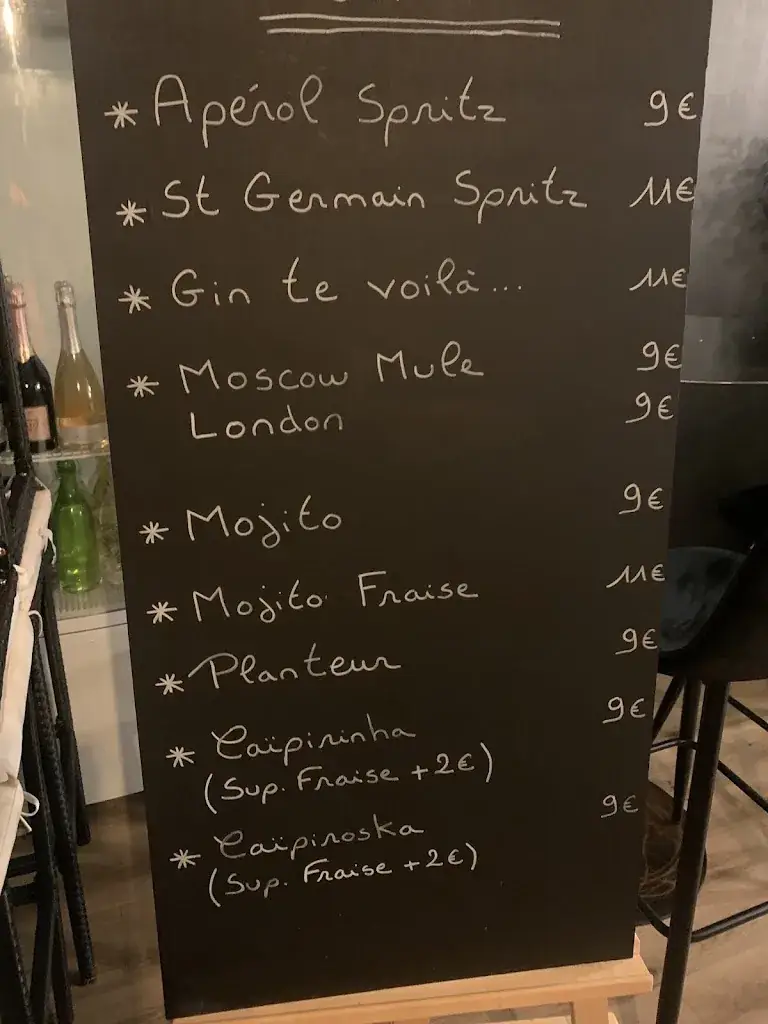 * Apérol Spritz 9€
* St Germain Spritz 11€
* Gin te voilà... 11€
* Moscow Mule 9€
London 9€
* Mojito 9€
* Mojito Fraise 11€
* Planteur 9€
* Caïpirinha 9€
(Sup. Fraise +2€)
* Caïpiroska 9€
(Sup. Fraise +2€)